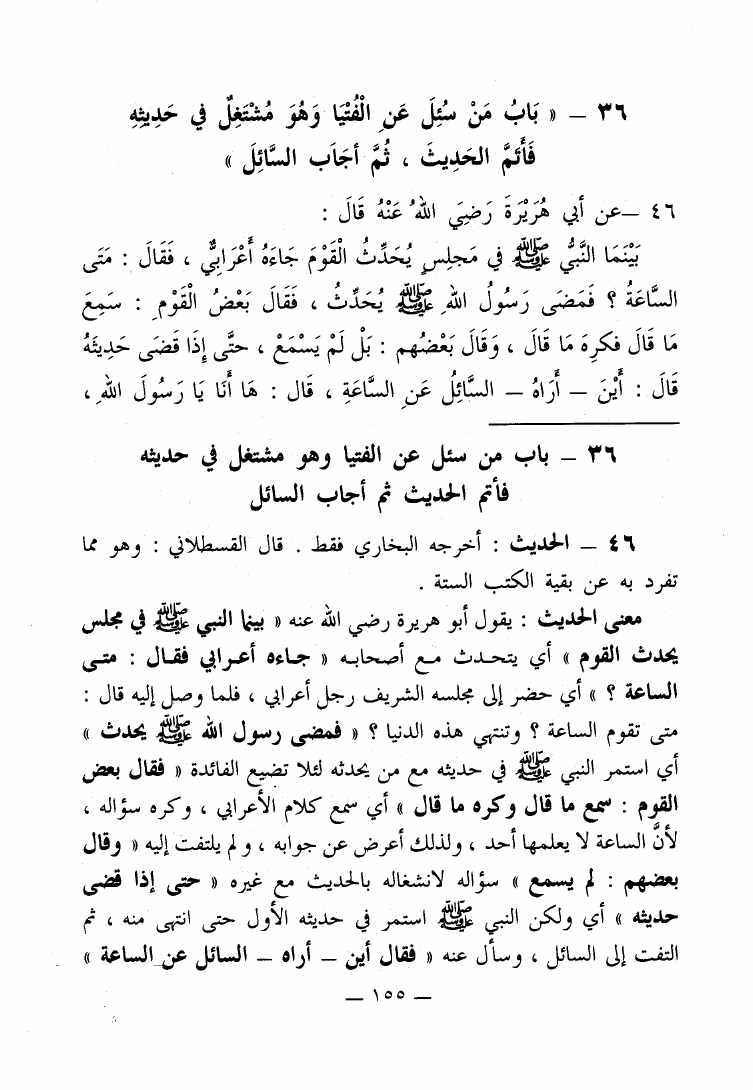 ٣٦ – « بَابُ مَنْ سُئِلَ عَنِ الْفُتْيَا وَهُوَ مُشْتَغِلٌ في حَدِيثِهِ
فَأَتَمَّ الحَدِيثَ ، ثُمَّ أجَابَ السَّائِلَ »
٤٦ –عن أبي هُرَيْرَةَ رَضِيَ اللهُ عَنْهُ قَالَ :
بَيْنَمَا النَّبيُّ ﷺ في مَجلِسٍ يُحَدِّثُ الْقَوْمَ جَاءَهُ أَعْرَابيٌّ ، فَقَالَ : مَتَى
السَّاعَةُ ؟ فَمَضَى رَسُولُ اللهِ ﷺ يُحَدِّثُ ، فَقَالَ بَعْضُ الْقَوْمِ : سَمِعَ
مَا قَالَ فكرِهَ مَا قَالَ ، وَقَالَ بَعْضُهُم : بَلْ لَمْ يَسْمَعْ ، حتَّى إِذَا قَضَى حَدِيثَهُ
قَالَ : أَيْنَ – أَرَاهُ – السَّائِلُ عَنِ السَّاعَةِ ، قَال : هَا أَنَا يَا رَسُولَ اللهِ ،
٣٦ – باب من سئل عن الفتيا وهو مشتغل في حديثه
فأتم الحديث ثم أجاب السائل
٤٦ – الحديث : أخرجه البخاري فقط . قال القسطلاني : وهو مما
تفرد به عن بقية الكتب الستة .
معنى الحديث : يقول أبو هريرة رضي الله عنه « بينما النبي ﷺ في مجلس
يحدث القوم » أي يتحدث مع أصحابه « جاءه أعرابي فقال : متى
الساعة ؟ » أي حضر إلى مجلسه الشريف رجل أعرابي ، فلما وصل إليه قال :
متى تقوم الساعة ؟ وتنتهي هذه الدنيا ؟ « فمضى رسول الله ﷺ يحدث »
أي استمر النبي ﷺ في حديثه مع من يحدثه لئلا تضيع الفائدة « فقال بعض
القوم : سمع ما قال وكره ما قال » أي سمع كلام الأعرابي ، وكره سؤاله ،
لأنَّ الساعة لا يعلمها أحد ، ولذلك أعرض عن جوابه ، ولم يلتفت إليه « وقال
بعضهم : لم يسمع » سؤاله لانشغاله بالحديث مع غيره « حتى إذا قضى
حديثه » أي ولكن النبي ﷺ استمر في حديثه الأول حتى انتهى منه ، ثم
التفت إلى السائل ، وسأل عنه « فقال أين – أراه – السائل عن الساعة »
– ١٥٥ –